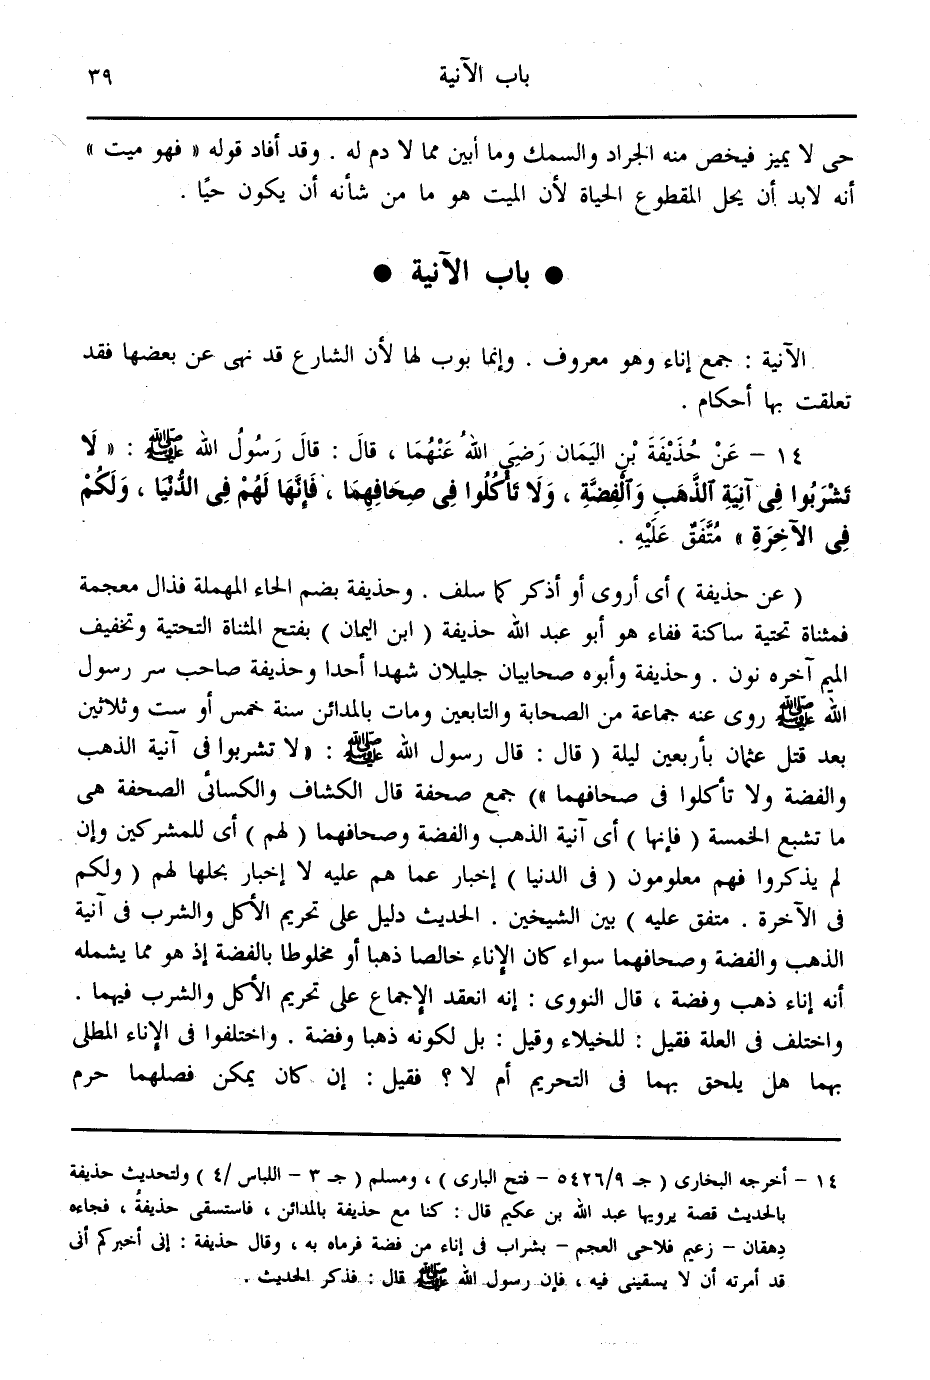 باب الآنية ٣٩
حى لا يميز فيخص منه الجراد والسمك وما أبين مما لا دم له . وقد أفاد قوله « فهو ميت »
أنه لابد أن يحل المقطوع الحياة لأن الميت هو ما من شأنه أن يكون حيًا .
● باب الآنية ●
الآنية : جمع إناء وهو معروف . وإنما بوب لها لأن الشارع قد نهى عن بعضها فقد
تعلقت بها أحكام .
١٤ – عَنْ حُذَيْفَةَ بْنِ اليَمَان رَضِيَ اللهُ عَنْهُمَا ، قالَ : قالَ رَسُولُ الله ﷺ : « لَا
تَشْرَبُوا فِى آنِيَةِ الذَّهَبِ وَالْفِضَّةِ ، وَلَا تَأْكُلُوا فِى صِحَافِهِمَا ، فَإِنَّهَا لَهُمْ فِى الدُّنْيَا ، وَلَكُمْ
فِى الآخِرَةِ » مُتَّفَقٌ عَلَيْهِ .
( عن حذيفة ) أى أروى أو أذكر كما سلف . وحذيفة بضم الحاء المهملة فذال معجمة
فمثناة تحتية ساكنة ففاء هو أبو عبد الله حذيفة ( ابن اليمان ) بفتح المثناة التحتية وتخفيف
الميم آخره نون . وحذيفة وأبوه صحابيان جليلان شهدا أحدا وحذيفة صاحب سر رسول
الله ﷺ روى عنه جماعة من الصحابة والتابعين ومات بالمدائن سنة خمس أو ست وثلاثين
بعد قتل عثمان بأربعين ليلة ( قال : قال رسول الله ﷺ : « لا تشربوا فى آنية الذهب
والفضة ولا تأكلوا فى صحافهما ») جمع صحفة قال الكشاف والكسائى الصحفة هى
ما تشبع الخمسة ( فإنها ) أى آنية الذهب والفضة وصحافهما ( لهم ) أى للمشركين وإن
لم يذكروا فهم معلومون ( فى الدنيا ) إخبار عما هم عليه لا إخبار بحلها لهم ( ولكم
فى الآخرة . متفق عليه ) بين الشيخين . الحديث دليل على تحريم الأكل والشرب فى آنية
الذهب والفضة وصحافهما سواء كان الإناء خالصا ذهبا أو مخلوطا بالفضة إذ هو مما يشمله
أنه إناء ذهب وفضة ، قال النووى : إنه انعقد الإجماع على تحريم الأكل والشرب فيهما .
واختلف فى العلة فقيل : للخيلاء وقيل : بل لكونه ذهبا وفضة . واختلفوا فى الإناء المطلى
بهما هل يلحق بهما فى التحريم أم لا ؟ فقيل : إن كان يمكن فصلهما حرم
١٤ – أخرجه البخارى ( جـ ٥٤٢٦/٩ – فتح البارى ) ، ومسلم ( جـ ٣ – اللباس /٤ ) ولتحديث حذيفة
بالحديث قصة يرويها عبد الله بن عكيم قال : كنا مع حذيفة بالمدائن ، فاستسقى حذيفةُ ، فجاءه
دِهقان – زعيم فلاحى العجم – بشراب فى إناء من فضة فرماه به ، وقال حذيفة : إنى أخبركم أنى
قد أمرته أن لا يسقينى فيه ، فإن رسول الله ﷺ قال : فذكر الحديث .